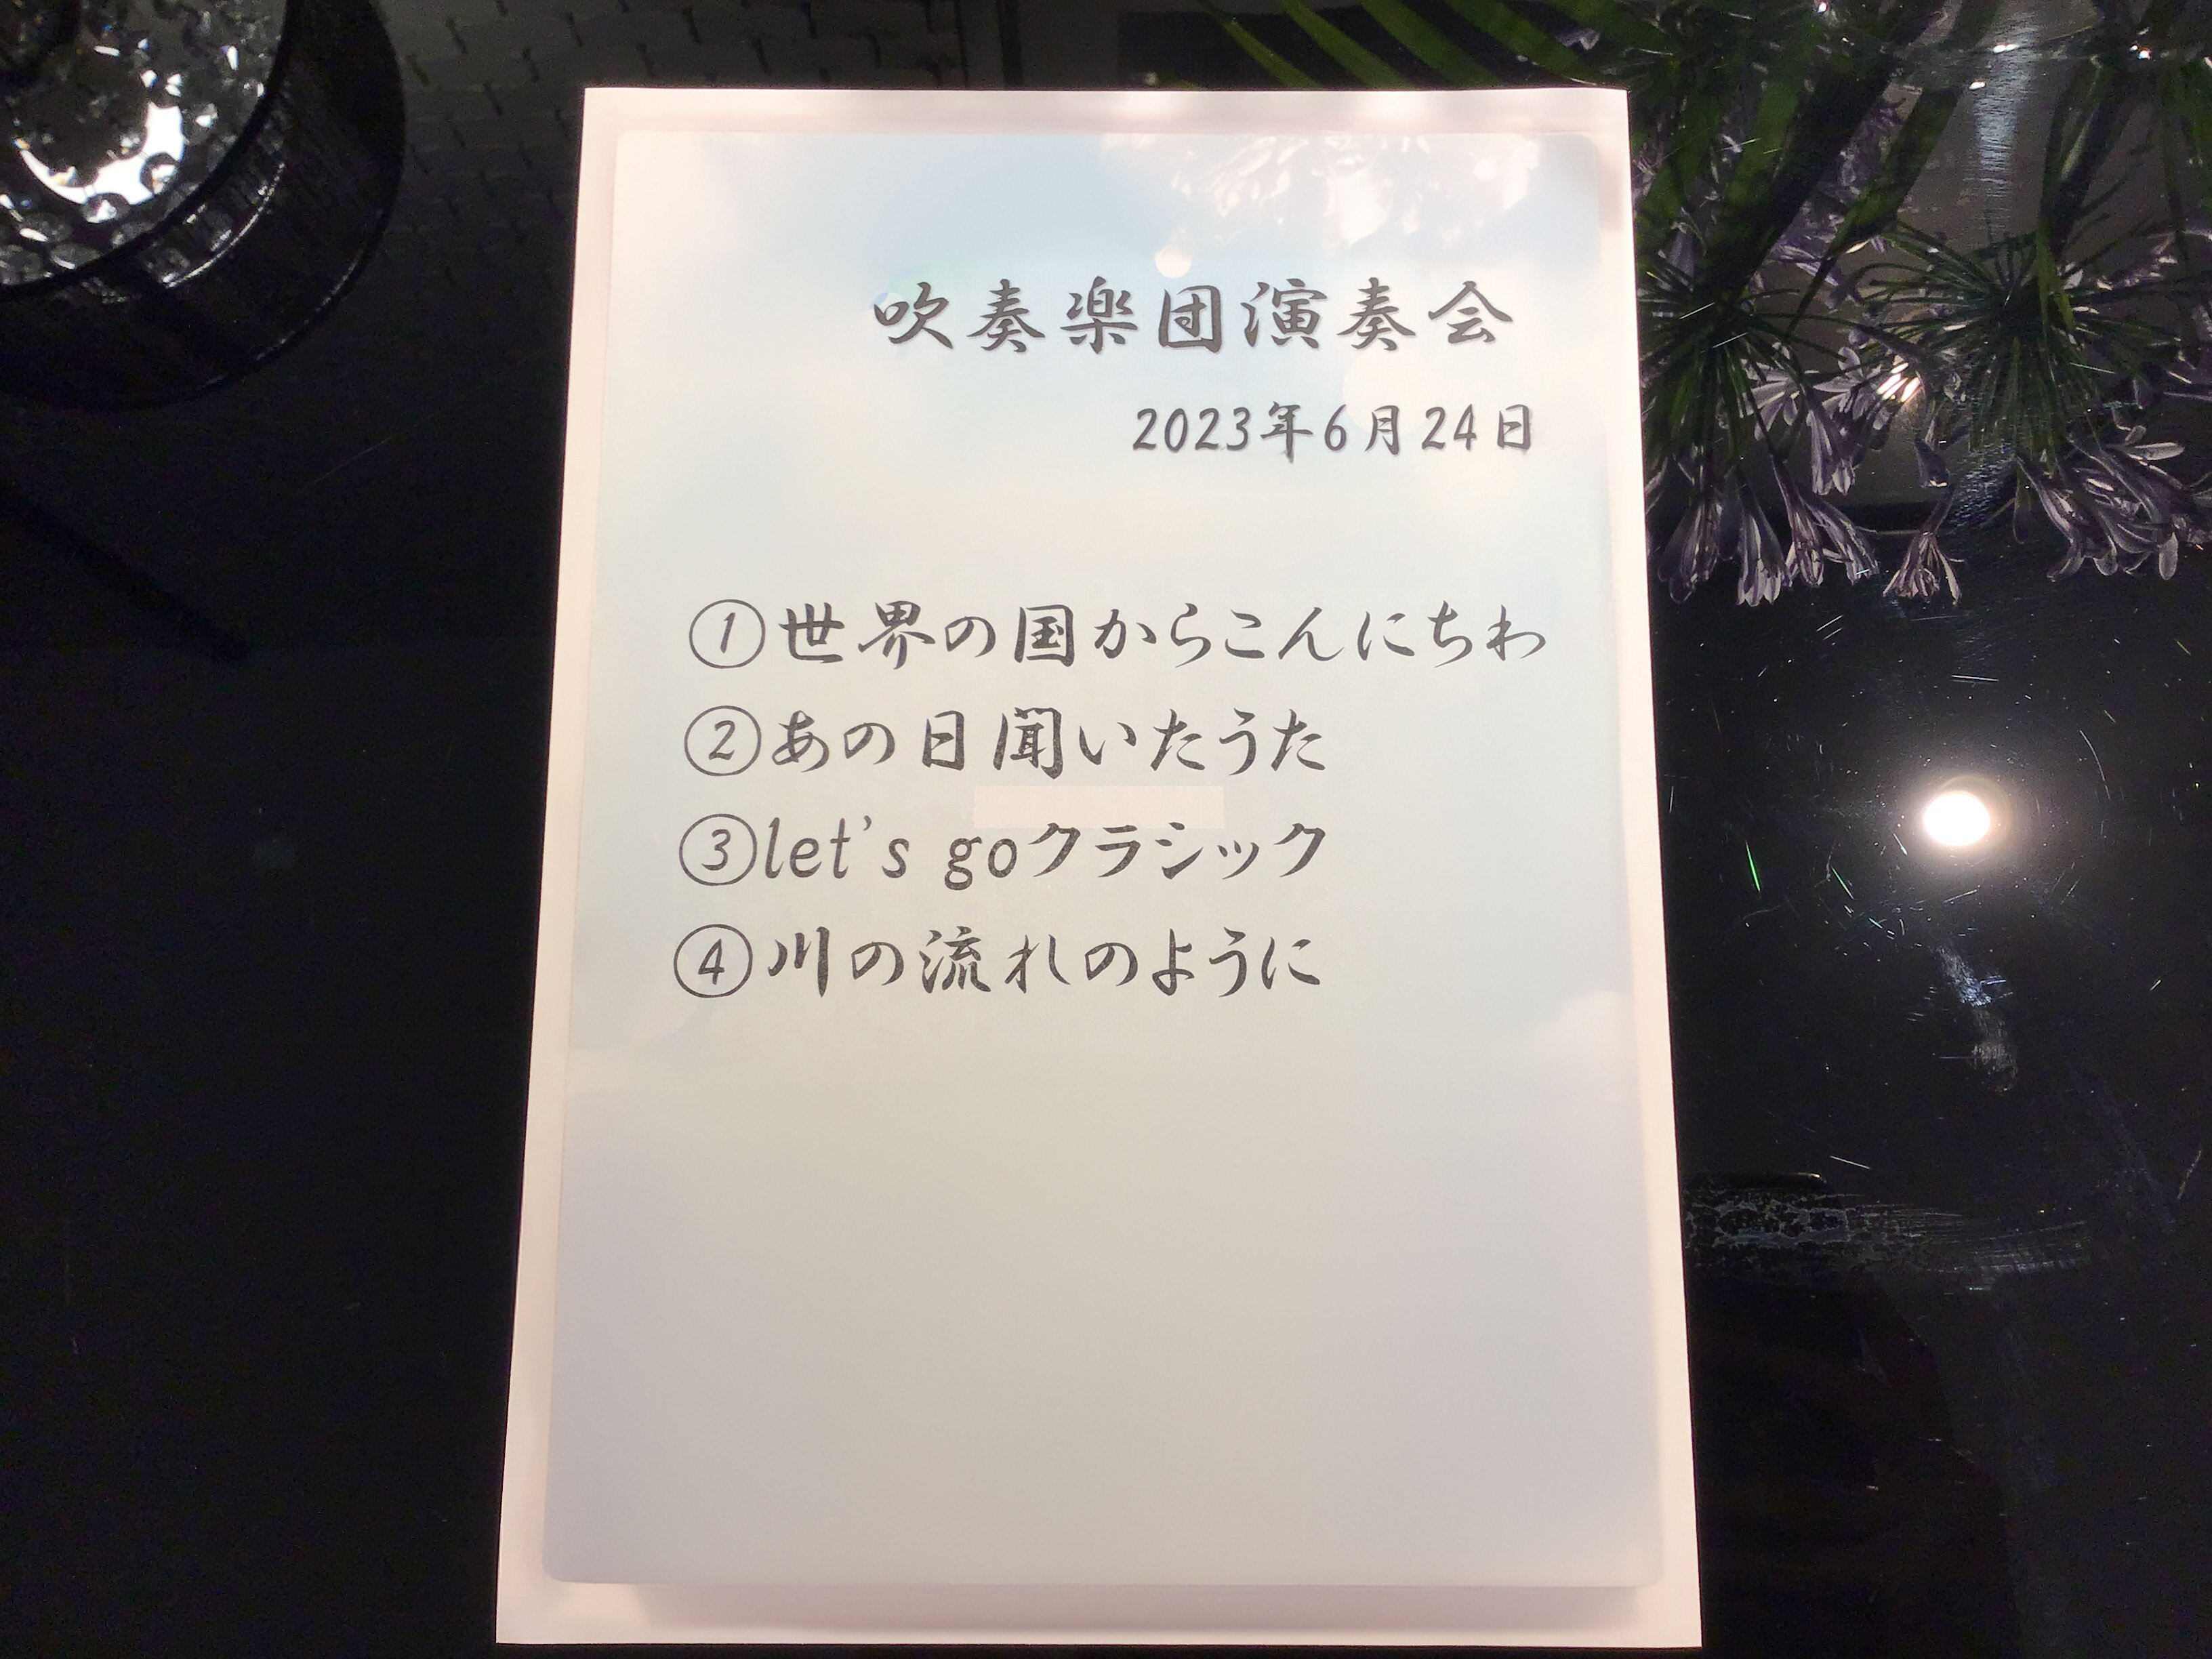 吹奏楽団演奏会
2023年6月24日
①世界の国からこんにちわ
②あの日聞いたうた
③let's goクラシック
④川の流れのように